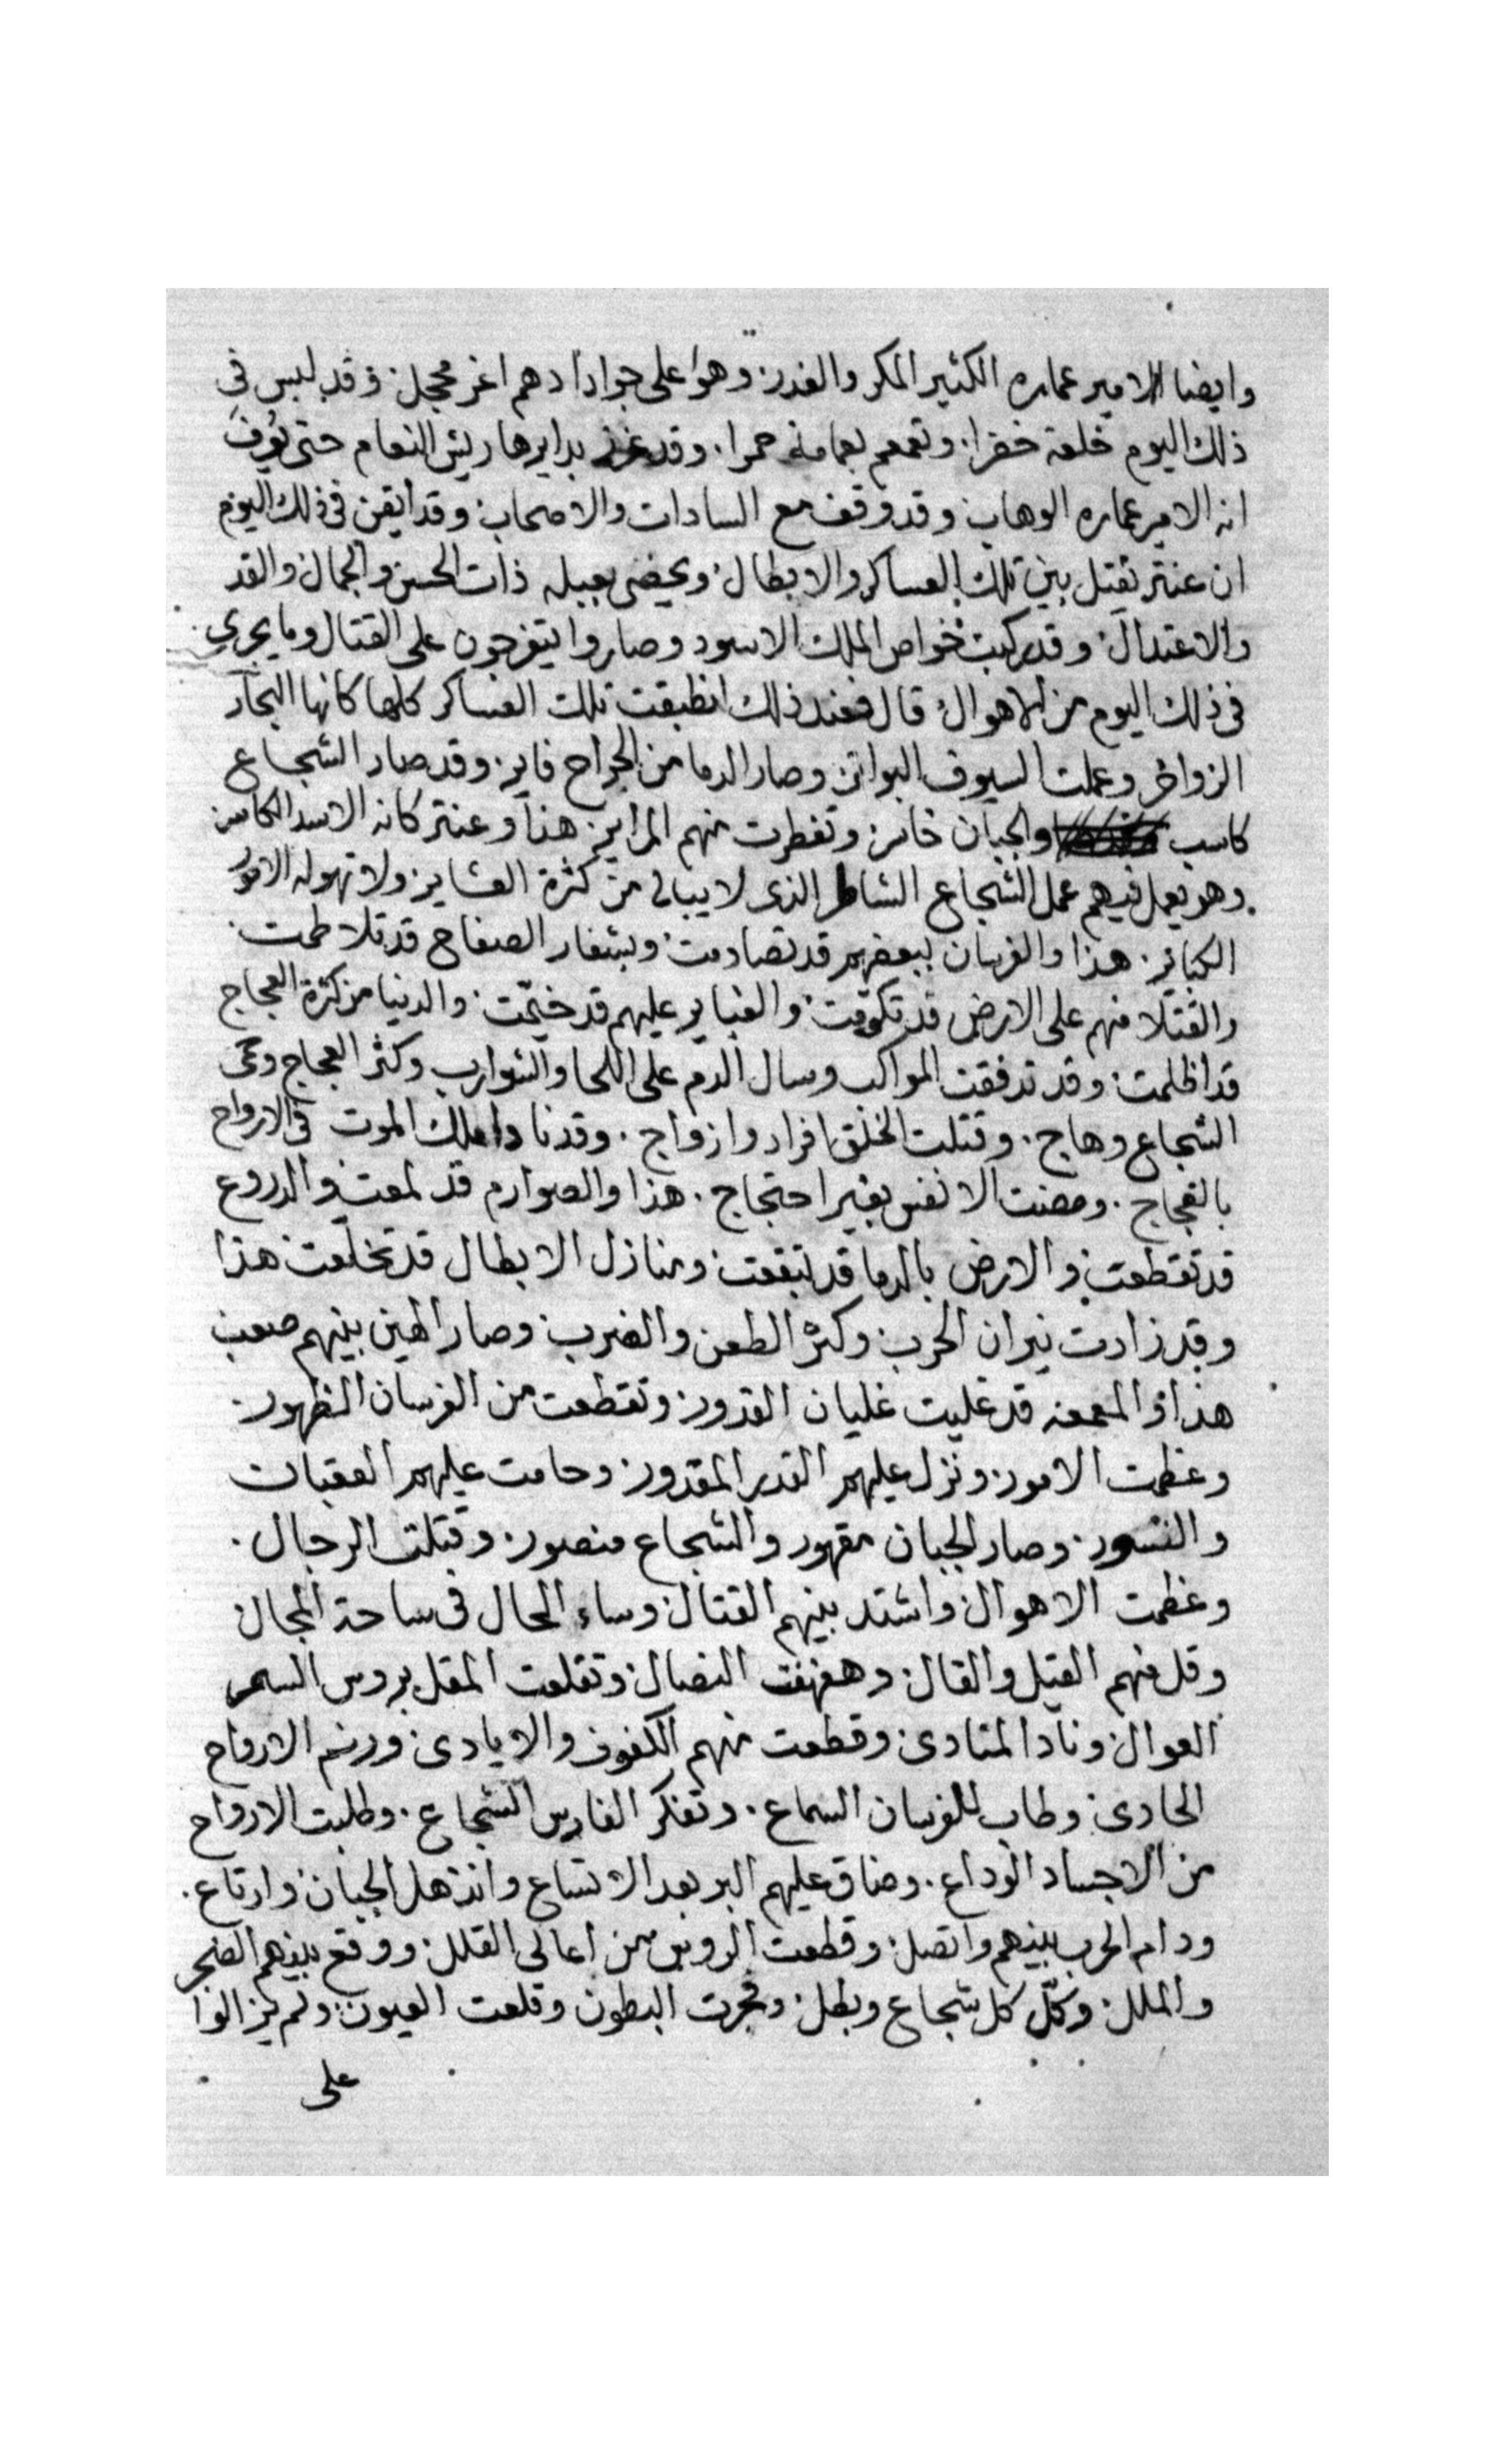 وايضا الامير عماره الكثير المكر والغدر وهوا على جوادا دهم اغر محجل وقد لبس في
ذلك اليوم خلعة خضرا وتعمم بعمامة حمرا وقد غرز بدايرها ريش النعام حتى يعرف
انه الامير عماره الوهاب وقد وقف مع السادات والاصحاب وقد ايقن في ذلك اليوم
ان عنتر يقتل بين تلك العساكر والابطال ويحضى بعبله ذات الحسن والجمال والقد
والاعتدال وقد ركبت خواص الملك الاسود وصاروا يتفرجون على القتال وما يجري
في ذلك اليوم من الاهوال قال فعند ذلك انطبقت تلك العساكر كلها كانها البحار
الزواخر وعملت السيوف البواتر وصار الدما من الجراح فاير وقد صار الشجاع
كاسب والجبان خاسر وتفطرت منهم المراير هذا وعنتر كانه الاسد الكاسر
وهو يعمل فيهم عمل الشجاع الشاطر الذى لا يبالى من كثرة العشاير ولا تهوله الامور
الكباير هذا والفرسان ببعضهم قد تصادمت وبشفار الصفاح قد تلاطمت
والقتلا منهم على الارض قد تكومت والغباير عليهم قد خيمت والدنيا من كثرة العجاج
قد اظلمت وقد تدفقت المواكب وسال الدم على اللحا والشوارب وكثر العجاج وعى
الشجاع وهاج وقتلت الخلق افراد وازواج وقد نادا ملك الموت في الارواح
بالفجاج ومضت الانفس بغير احتجاج هذا والصوارم قد لمعت والدروع
قد تقطعت والارض بالدما قد تبقعت ومنازل الابطال قد تخلعت هذا
وقد زادت نيران الحرب وكثر الطعن والضرب وصار الهين بينهم صعب
هذا والمعمعه قد غليت غليان القدور وتقطعت من الفرسان الظهور
وعظمت الامور ونزل عليهم القدر المقدور وحامت عليهم العقبات
والنسور وصار الجبان مقهور والشجاع منصور وقتلت الرجال
وعظمت الاهوال واشتد بينهم القتال وساء الحال في ساحة المجال
وقل منهم القيل والقال وهفهفت النصال وتقلعت المقل بروس السمر
العوال ونادا المنادى وقطعت منهم الكفوف والايادى وزرنم الارواح
الحادى وطاب للفرسان السماع وتفكر الفارس الشجاع وطلبت الارواح
من الاجساد الوداع وضاق عليهم البر بعد الاتساع وانذهل الجبان وارتاع
ودام الحرب بينهم واتصل وقطعت الروس من اعالى القلل ووقع بينهم الضجر
والملل وكل كل شجاع وبطل وفجرت البطون وقلعت العيون ولم يزالوا
على